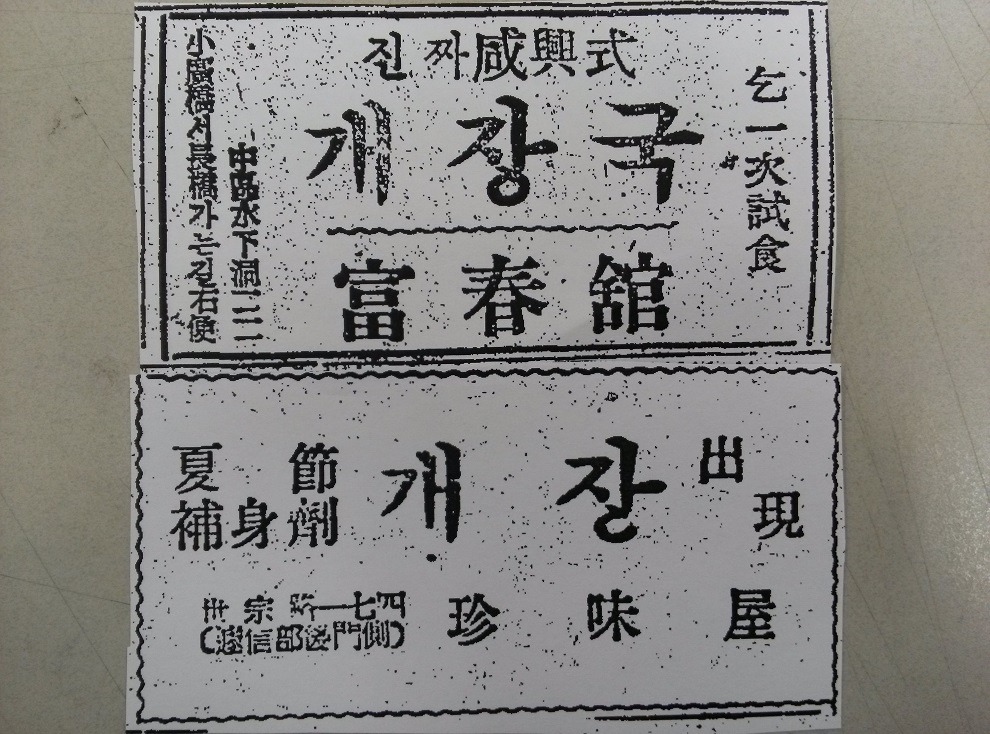 진짜咸興式
개장국
富春舘
乞一次試食
中區水下洞
小廣橋서長橋가는길右便
夏節
補身劑
개장
出現
珍味屋
世宗路一七四
(遞信部後門側)